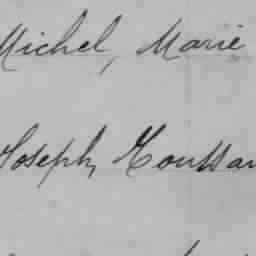 Michel, Marie
Joseph, Toussan